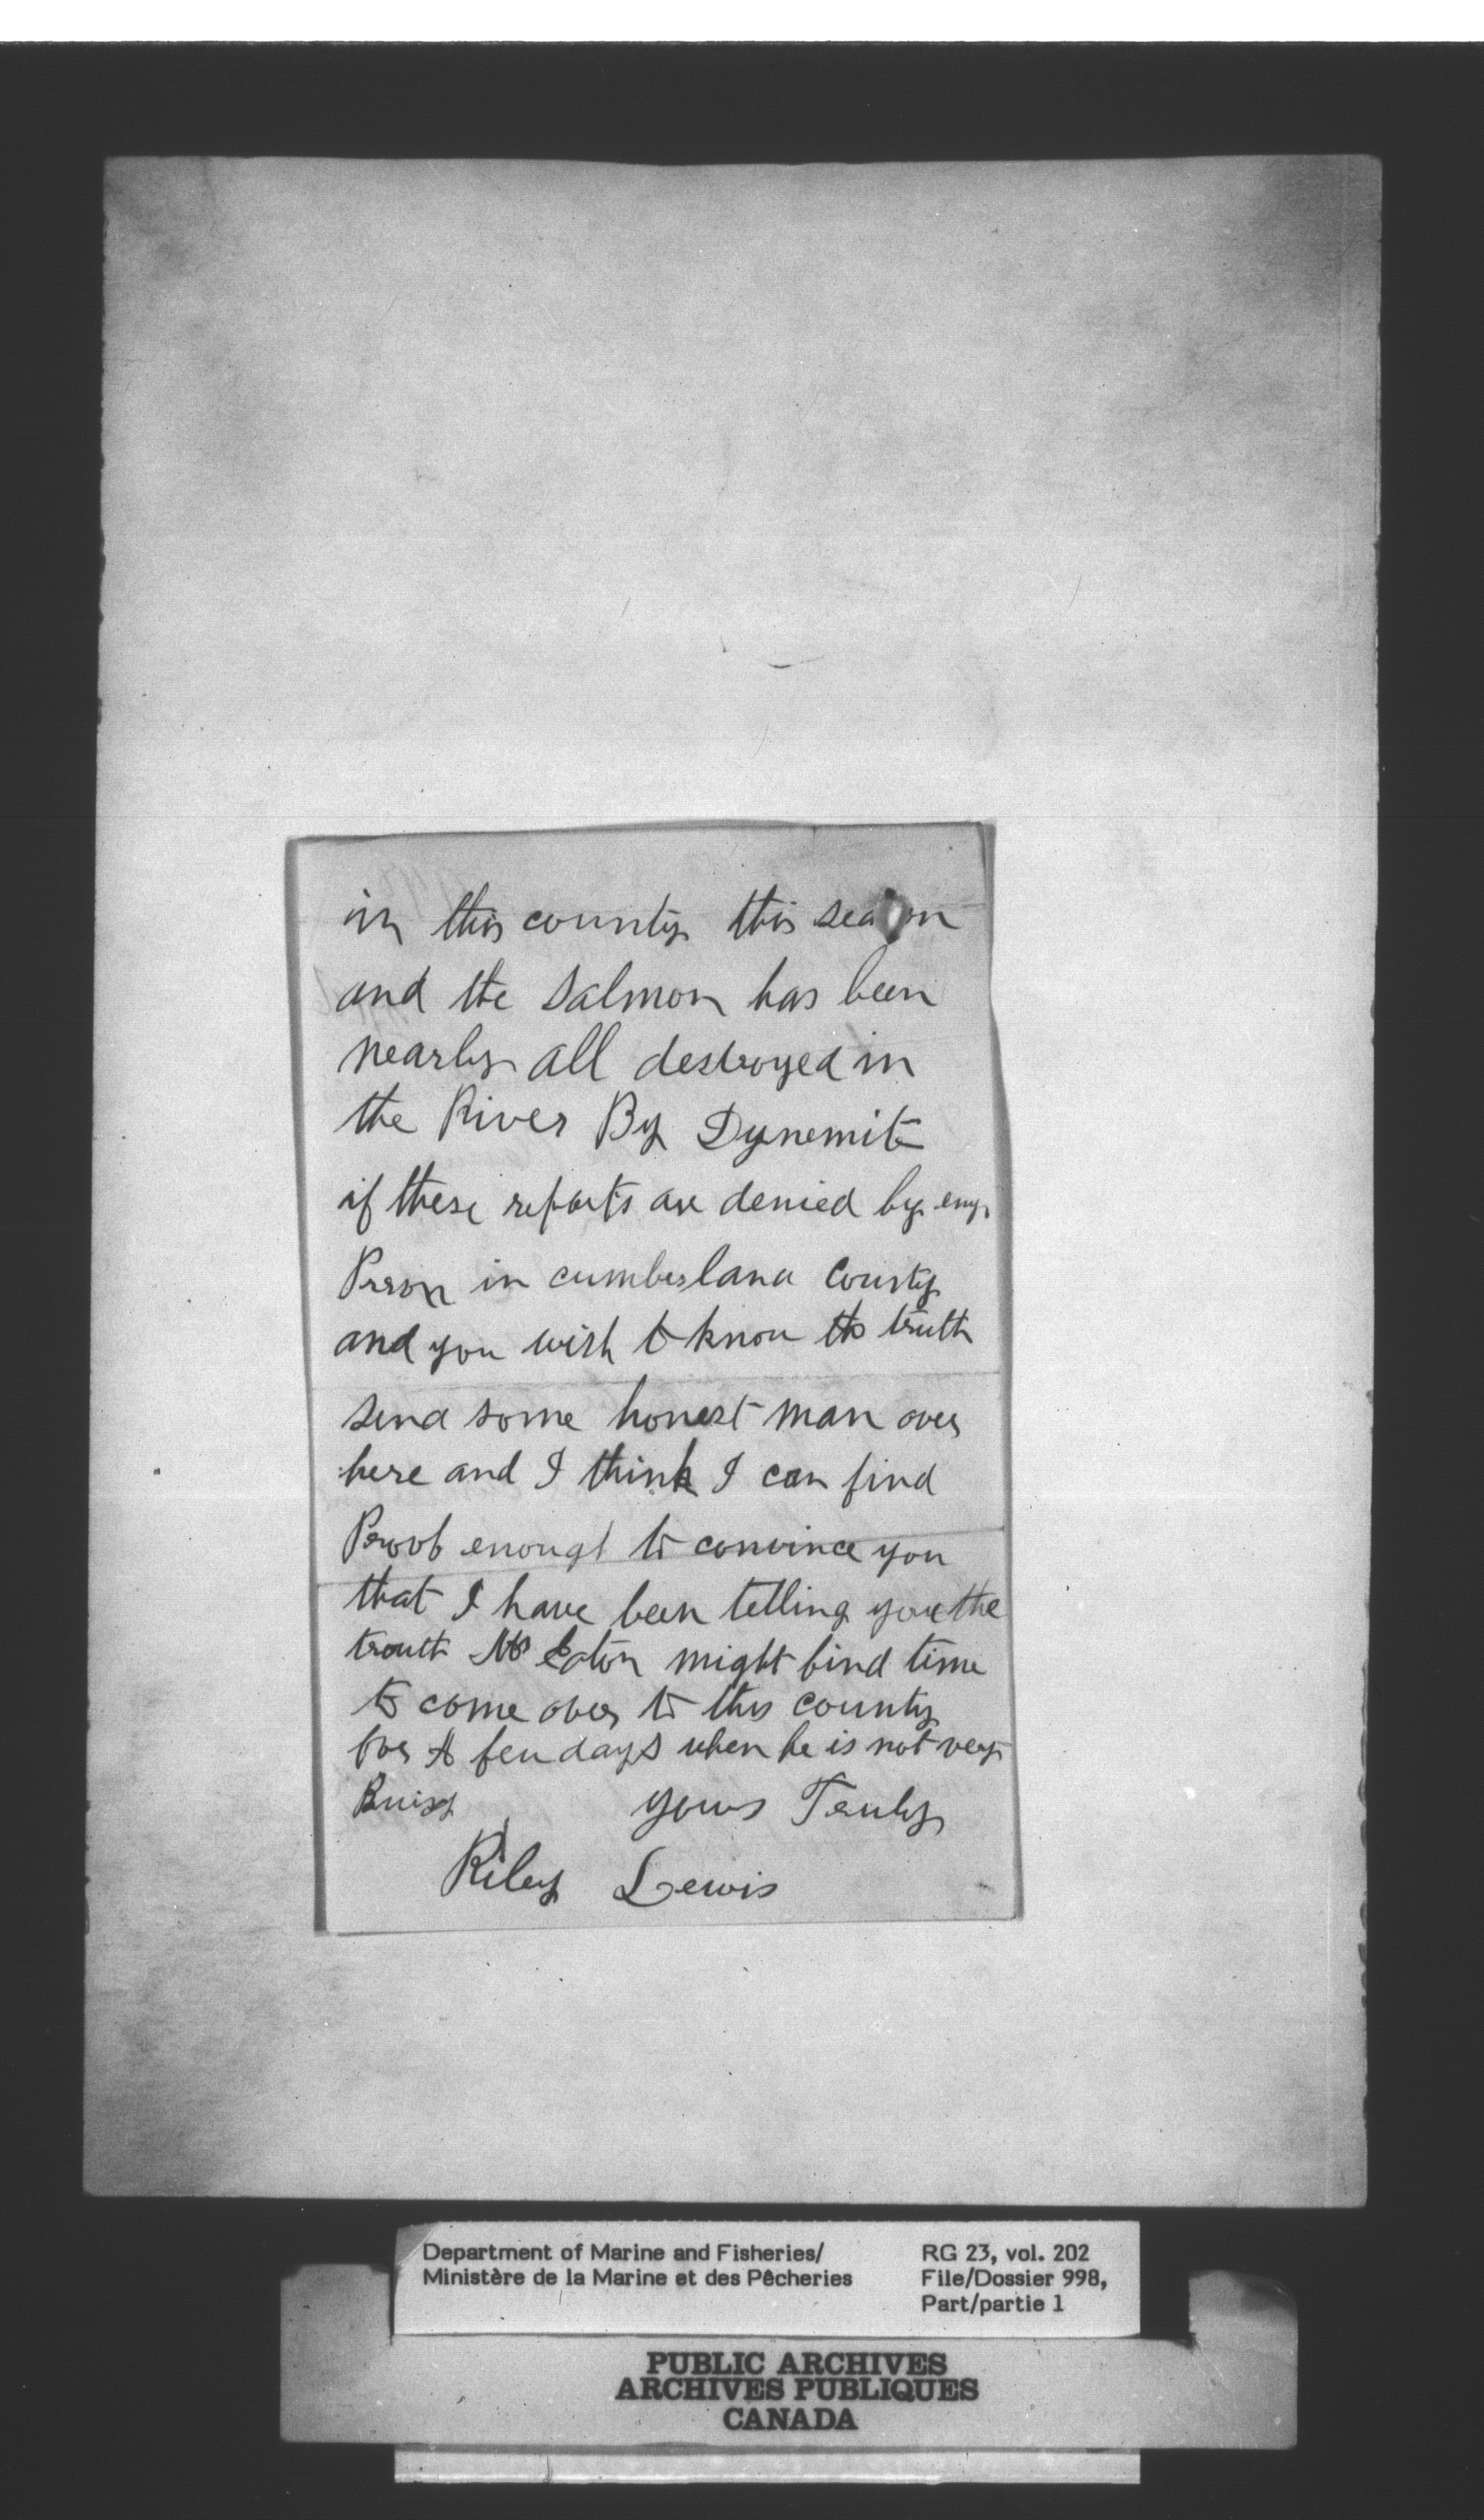 in this county this season
and the Salmon has been
nearly all destroyed in
the River By Dynemite
if these reports are denied by eny
Prson in cumberland County
and you wish to know the truth
send some honest man over
here and I think I can find
Proof enough to convince you
that I have been telling you the
trouth Mr Eaton might find time
to come over to this county
for A few days when he is not very
Buisy yours Truly
Riley Lewis
Department of Marine and Fisheries/
Ministère de la Marine et des Pêcheries
RG 23, vol. 202
File/Dossier 998,
Part/partie 1
PUBLIC ARCHIVES
ARCHIVES PUBLIQUES
CANADA